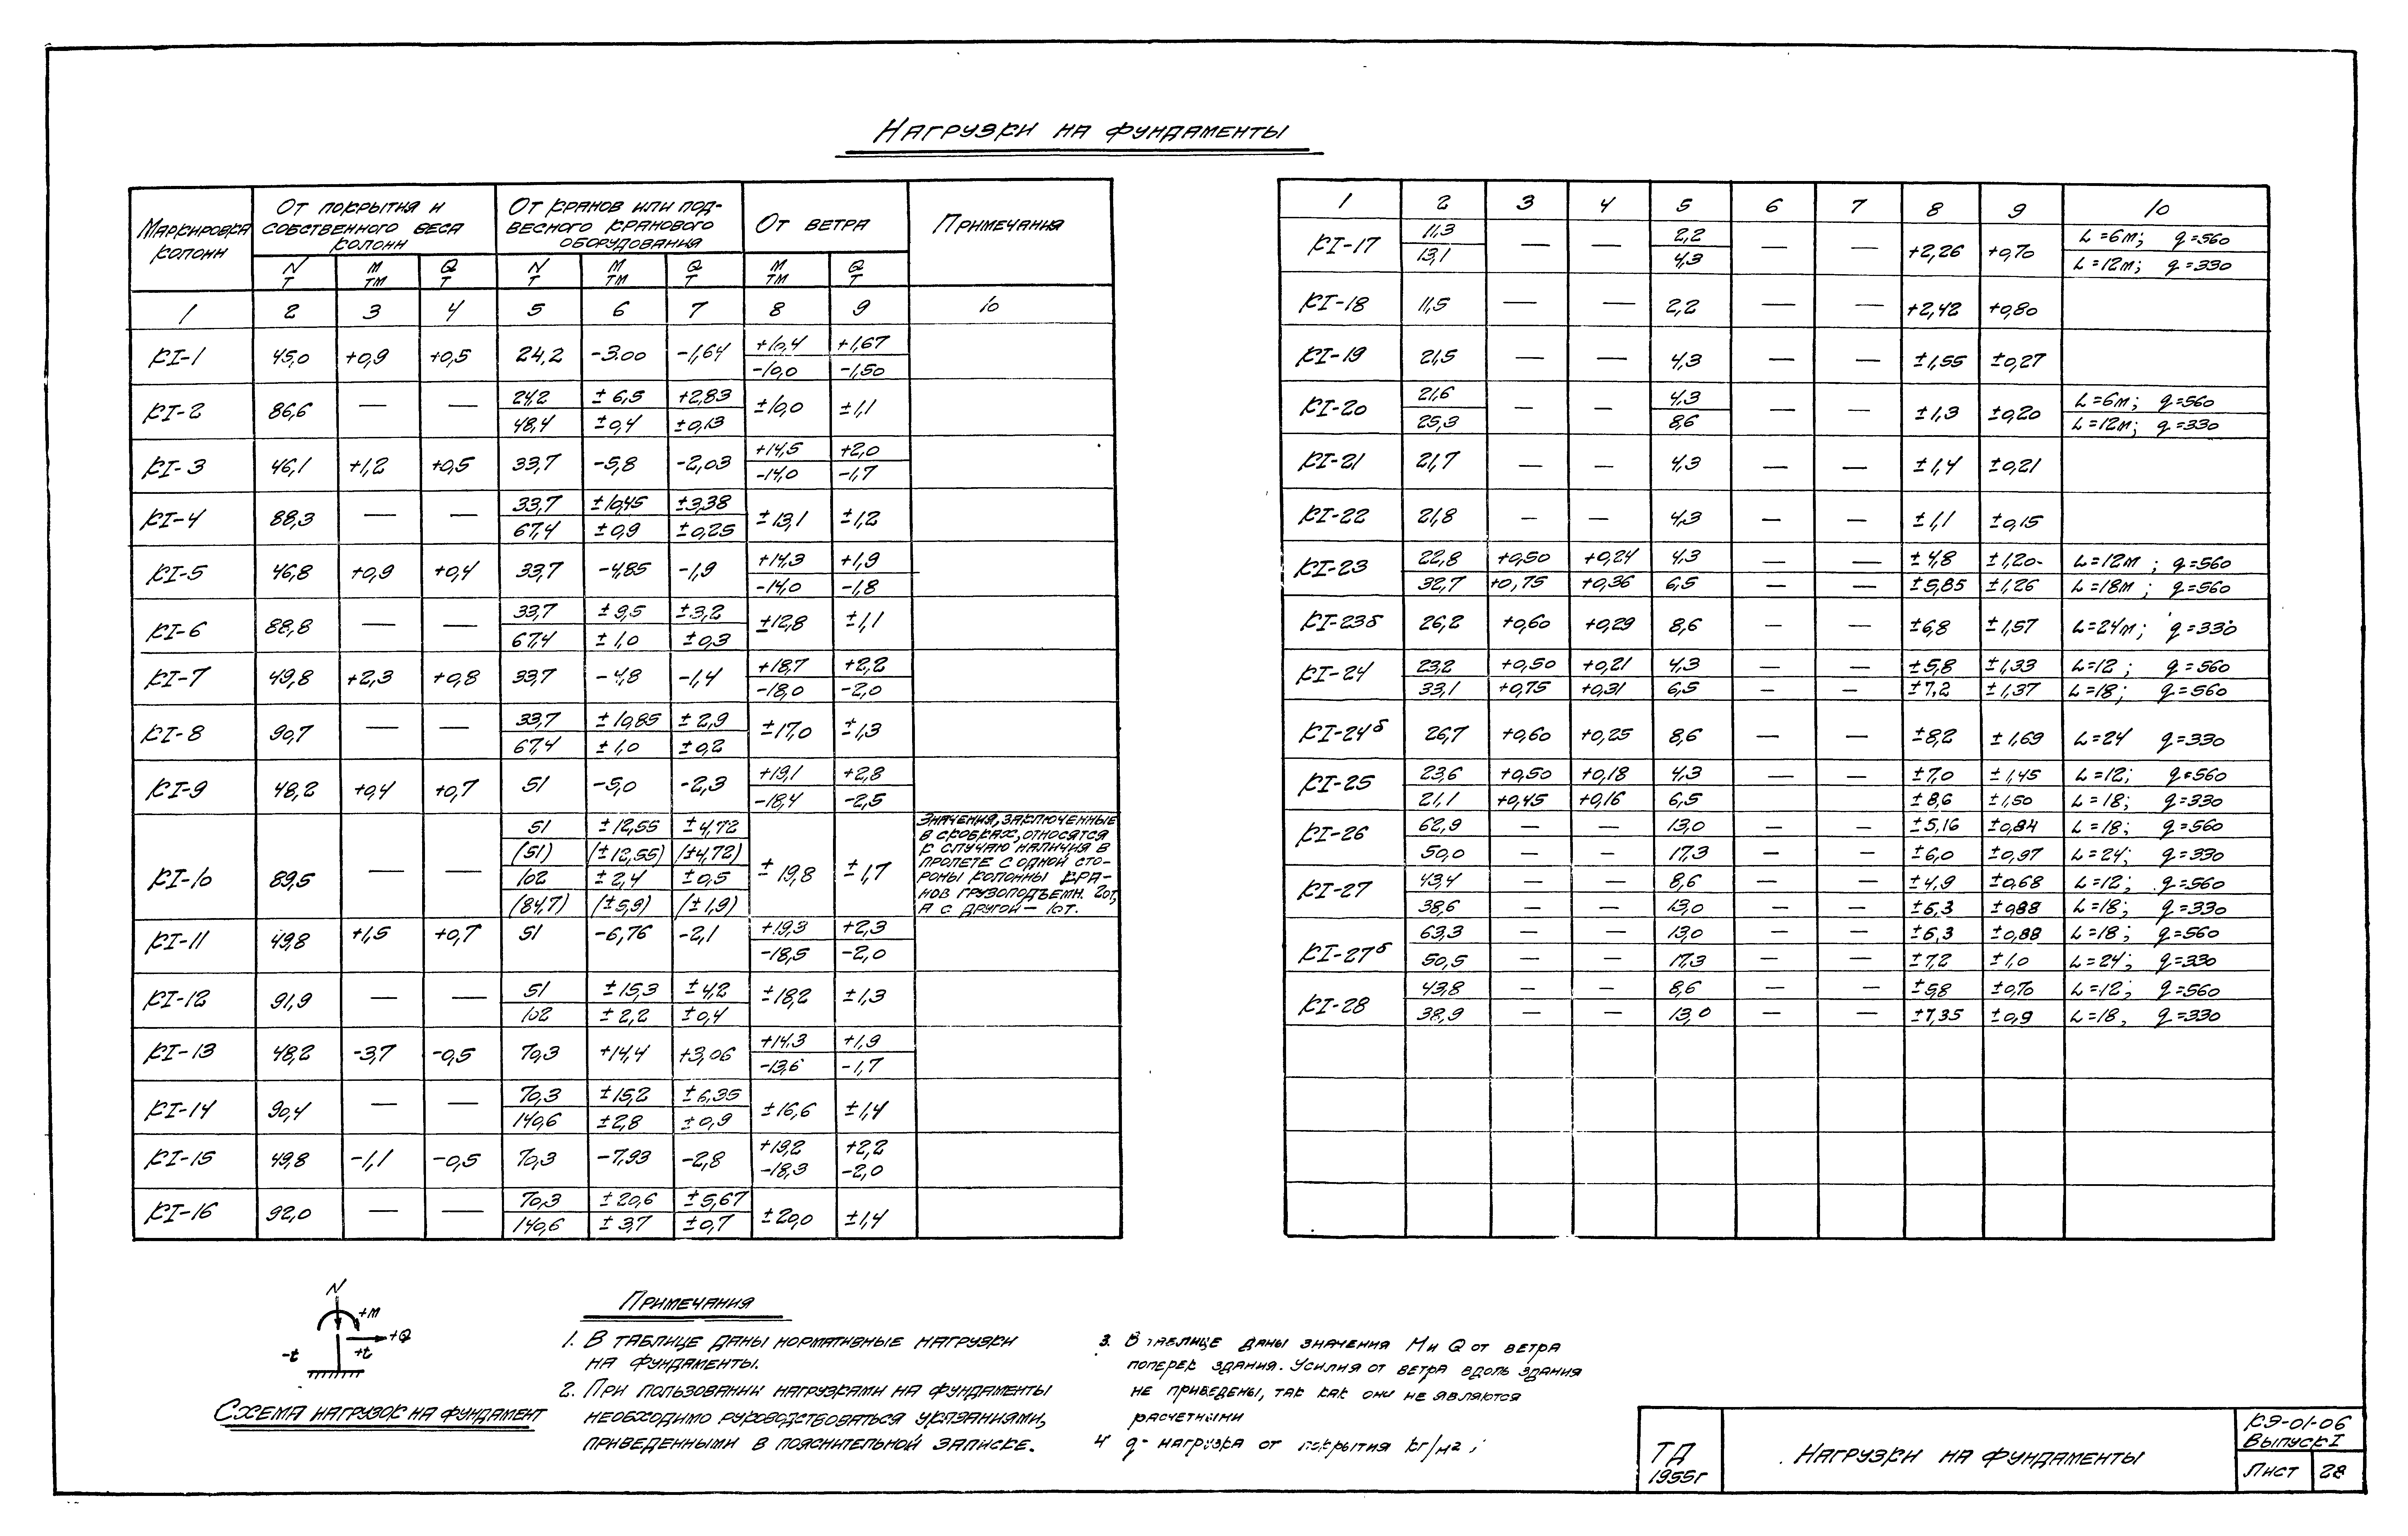 Нагрузки на фундаменты
Маркировка колонн | От покрытия и собственного веса колонн | От кранов или подвесного кранового оборудования | От ветра | Примечания
N т | M тм | Q т | N т | M тм | Q т | M тм | Q т
1 | 2 | 3 | 4 | 5 | 6 | 7 | 8 | 9 | 10
КI-1 | 45,0 | +0,9 | +0,5 | 24,2 | -3.00 | -1,64 | +10,4 | +1,67
-10,0 | -1,50
КI-2 | 86,6 | — | — | 24,2 | ±6,5 | +2,83 | ±10,0 | ±1,1
48,4 | ±0,4 | ±0,13
КI-3 | 46,1 | +1,2 | +0,5 | 33,7 | -5,8 | -2,03 | +14,5 | +2,0
-14,0 | -1,7
КI-4 | 88,3 | — | — | 33,7 | ±10,45 | ±3,38 | ±13,1 | ±1,2
67,4 | ±0,9 | ±0,25
КI-5 | 46,8 | +0,9 | +0,4 | 33,7 | -4,85 | -1,9 | +14,3 | +1,9
-14,0 | -1,8
КI-6 | 88,8 | — | — | 33,7 | ±9,5 | ±3,2 | ±12,8 | ±1,1
67,4 | ±1,0 | ±0,3
КI-7 | 49,8 | +2,3 | +0,8 | 33,7 | -4,8 | -1,4 | +18,7 | +2,2
-18,0 | -2,0
КI-8 | 90,7 | — | — | 33,7 | ±10,85 | ±2,9 | ±17,0 | ±1,3
67,4 | ±1,0 | ±0,2
КI-9 | 48,2 | +0,4 | +0,7 | 51 | -5,0 | -2,3 | +19,1 | +2,8
-18,4 | -2,5
КI-10 | 89,5 | — | — | 51 | ±12,55 | ±4,72 | ±19,8 | ±1,7
(51) | (±12,55) | (±4,72)
102 | ±2,4 | ±0,5
(84,7) | (±5,9) | (±1,9)
Значения, заключенные
в скобках, относятся
к случаю наличия в
пролете с одной сто-
роны колонны кра-
нов грузоподъемн. 20т,
а с другой — 10т.
КI-11 | 49,8 | +1,5 | +0,7 | 51 | -6,76 | -2,1 | +19,3 | +2,3
-18,5 | -2,0
КI-12 | 91,9 | — | — | 51 | ±15,3 | ±4,2 | ±18,2 | ±1,3
102 | ±2,2 | ±0,4
КI-13 | 48,2 | -3,7 | -0,5 | 70,3 | +14,4 | +3,06 | +14,3 | +1,9
-13,6 | -1,7
КI-14 | 90,4 | — | — | 70,3 | ±15,2 | ±6,35 | ±16,6 | ±1,4
140,6 | ±2,8 | ±0,9
КI-15 | 49,8 | -1,1 | -0,5 | 70,3 | -7,93 | -2,8 | +19,2 | +2,2
-18,3 | -2,0
КI-16 | 92,0 | — | — | 70,3 | ±20,6 | ±5,67 | ±20,0 | ±1,4
140,6 | ±3,7 | ±0,7
1 | 2 | 3 | 4 | 5 | 6 | 7 | 8 | 9 | 10
КI-17 | 11,3 | — | — | 2,2 | — | — | +2,26 | +0,70 | L=6м; q=560
13,1 | 4,3 | L=12м; q=330
КI-18 | 11,5 | — | — | 2,2 | — | — | +2,42 | +0,80
КI-19 | 21,5 | — | — | 4,3 | — | — | ±1,55 | ±0,27
КI-20 | 21,6 | — | — | 4,3 | — | — | ±1,3 | ±0,20 | L=6м; q=560
25,3 | 8,6 | L=12м; q=330
КI-21 | 21,7 | — | — | 4,3 | — | — | ±1,4 | ±0,21
КI-22 | 21,8 | — | — | 4,3 | — | — | ±1,1 | ±0,15
КI-23 | 22,8 | +0,50 | +0,24 | 4,3 | — | — | ±4,8 | ±1,20 | L=12м; q=560
32,7 | +0,75 | +0,36 | 6,5 | — | — | ±5,85 | ±1,26 | L=18м; q=560
КI-23б | 26,2 | +0,60 | +0,29 | 8,6 | — | — | ±6,8 | ±1,57 | L=24м; q=330
КI-24 | 23,2 | +0,50 | +0,21 | 4,3 | — | — | ±5,8 | ±1,33 | L=12; q=560
33,1 | +0,75 | +0,31 | 6,5 | — | — | ±7,2 | ±1,37 | L=18; q=560
КI-24б | 26,7 | +0,60 | +0,25 | 8,6 | — | — | ±8,2 | ±1,69 | L=24 q=330
КI-25 | 23,6 | +0,50 | +0,18 | 4,3 | — | — | ±7,0 | ±1,45 | L=12; q=560
21,1 | +0,45 | +0,16 | 6,5 | ±8,6 | ±1,50 | L=18; q=330
КI-26 | 62,9 | — | — | 13,0 | — | — | ±5,16 | ±0,84 | L=18; q=560
50,0 | — | — | 17,3 | — | — | ±6,0 | ±0,97 | L=24; q=330
КI-27 | 43,4 | — | — | 8,6 | — | — | ±4,9 | ±0,68 | L=12; q=560
38,6 | — | — | 13,0 | — | — | ±6,3 | ±0,88 | L=18; q=330
КI-27б | 63,3 | — | — | 13,0 | — | — | ±6,3 | ±0,88 | L=18; q=560
50,5 | — | — | 17,3 | — | — | ±7,2 | ±1,0 | L=24; q=330
КI-28 | 43,8 | — | — | 8,6 | — | — | ±5,8 | ±0,70 | L=12; q=560
38,9 | — | — | 13,0 | — | — | ±7,35 | ±0,9 | L=18, q=330
N
+M
+Q
-t +t
Схема нагрузок на фундамент
Примечания
1. В таблице даны нормативные нагрузки
на фундаменты.
2. При пользовании нагрузками на фундаменты
необходимо руководствоваться указаниями,
приведенными в пояснительной записке.
3. В таблице даны значения М и Q от ветра
поперек здания. Усилия от ветра вдоль здания
не приведены, так как они не являются
расчетными
4 q - нагрузка от покрытия кг/м²;
ТД
1955г
Нагрузки на фундаменты
КЭ-01-06
Выпуск I
Лист 28